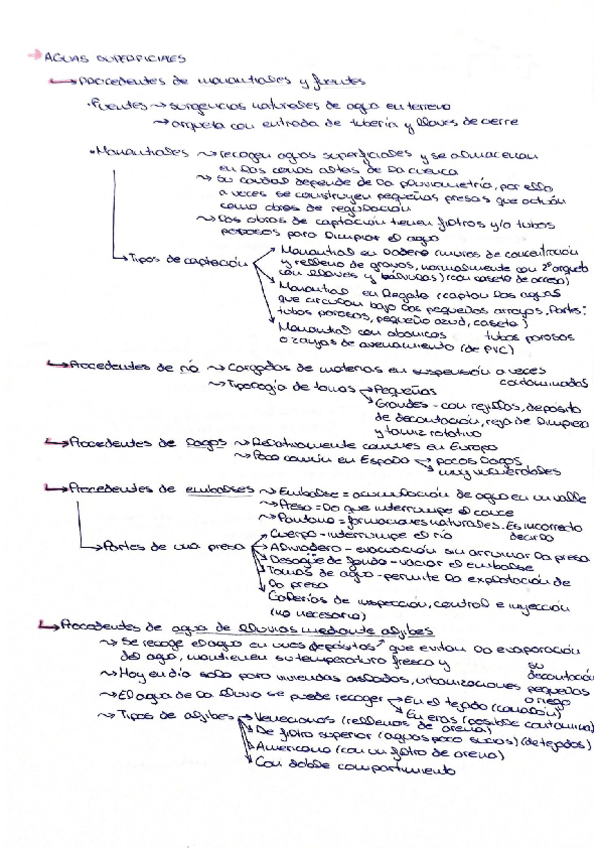 → AGUAS SUPERFICIALES
→ PROCEDENTES de manantiales y fuentes
• Fuentes → surgencias naturales de agua en terreno
→ arqueta con entrada de tubería y llaves de cierre
• Manantiales → recogen aguas superficiales y se almacenan
en las zonas altes de la cuenca
→ su caudal depende de la pluviometría, por ello
a veces se construyen pequeñas presas que actúan
como obras de regulación
→ Las obras de captación tienen filtros y/o tubos
porosos para limpiar el agua
→ Tipos de captación
Manantial en ladera (muros de concentración
y relleno de gravas, normalmente con 2ª arqueta
con llaves y válvulas) (con caseta de acceso)
Manantial en Regato (captan las aguas
que circulan bajo los pequeños arroyos. Partes:
tubos porosos, pequeño azud, caseta)
Manantial con abanicos tubos porosos
o zanjas de avenamiento (de PVC)
→ Procedentes de río → Cargadas de materias en suspensión a veces
contaminadas
→ Tipología de tomas → Pequeñas
Grandes - con rejillas, depósito
de decantación, reja de limpieza
y tamiz rotativo
→ Procedentes de lagos → Relativamente comunes en Europa
→ Poco común en España → pocos lagos
muy vulnerables
→ Procedentes de embalses → Embalse = acumulación de agua en un valle
→ Presa = lo que interrumpe el cauce
→ Pantano = formaciones naturales. Es incorrecto
decirlo
→ Partes de una presa → Cuerpo - interrumpe el río
Aliviadero - evacuación sin arruinar la presa
Desagüe de fondo - vaciar el embalse
Tomas de agua - permite la explotación de
la presa
Galerías de inspección, control e inyección
(no necesario)
→ Procedentes de agua de lluvias mediante aljibes
→ Se recoge el agua en unos depósitos que evitan la evaporación
del agua, mantienen su temperatura fresca y su
decantación
→ Hoy en día solo para viviendas aisladas, urbanizaciones pequeñas
o riego
→ El agua de la lluvia se puede recoger → En el tejado (canalón)
En eras (posible contamina)
→ Tipos de aljibes → Venecianos (rellenos de arena)
De filtro superior (aguas poco sucias) (de tejados)
Americano (con un filtro de arena)
Con doble compartimento